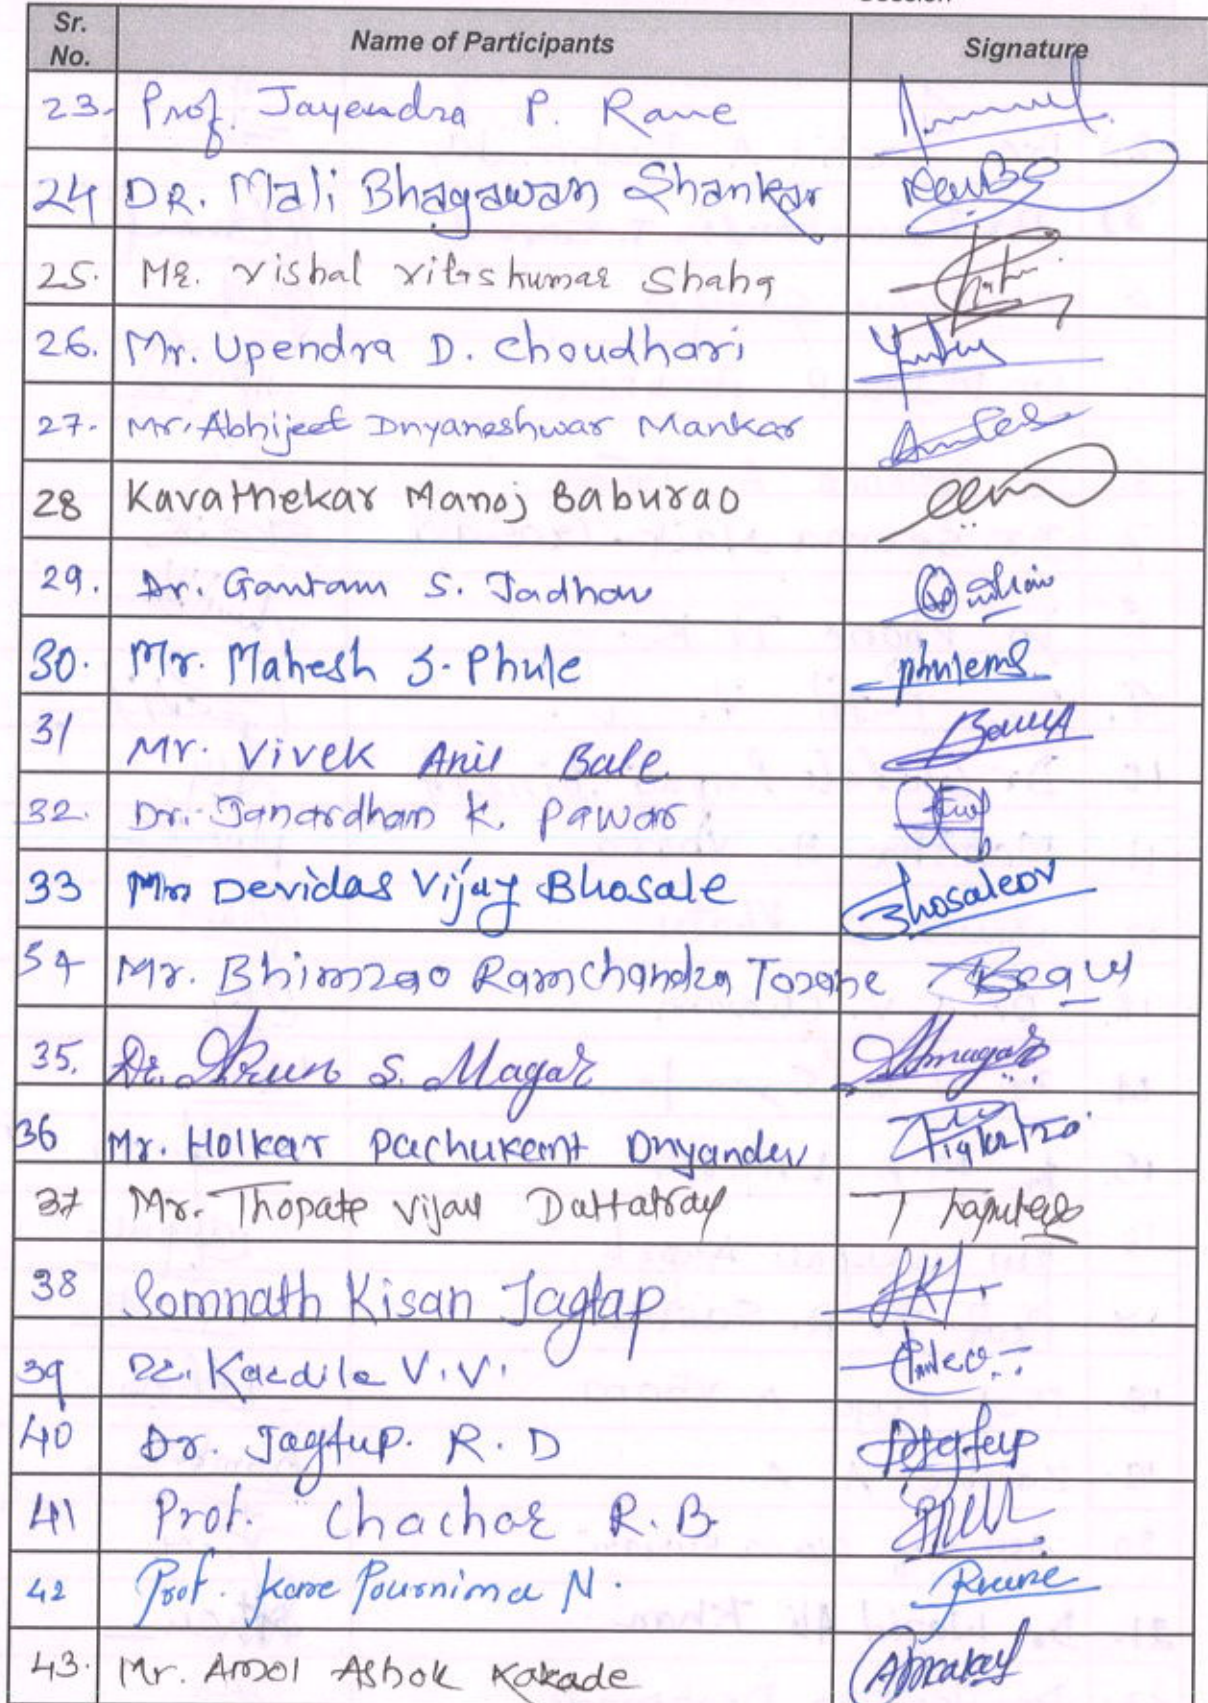 Session
Sr. No. Name of Participants Signature
23. Prof. Jayendra P. Rane
24 DR. Mali Bhagawan Shankar
25. Mr. Vishal Vilaskumar Shaha
26. Mr. Upendra D. Choudhari
27. Mr. Abhijeet Dnyaneshwar Mankar
28 Kavathekar Manoj Baburao
29. Dr. Gautam S. Jadhav
30. Mr. Mahesh S. Phule phulems
31 Mr. Vivek Anil Bale
32. Dr. Janardhan K. Pawar
33 Mr. Devidas Vijay Bhosale BhosaleDV
34 Mr. Bhimrao Ramchandra Torane
35. Dr. Arun S. Magar
36 Mr. Holkar Dnyandev
37 Mr. Thopate Vijay Dattatray
38 Somnath Kisan Jagtap
39 Dr. Kardile V.V.
40 Dr. Jagtap. R. D
41 Prof. Chachar R.B.
42 Prof. Kore Pournima N.
43. Mr. Amol Ashok Kakade